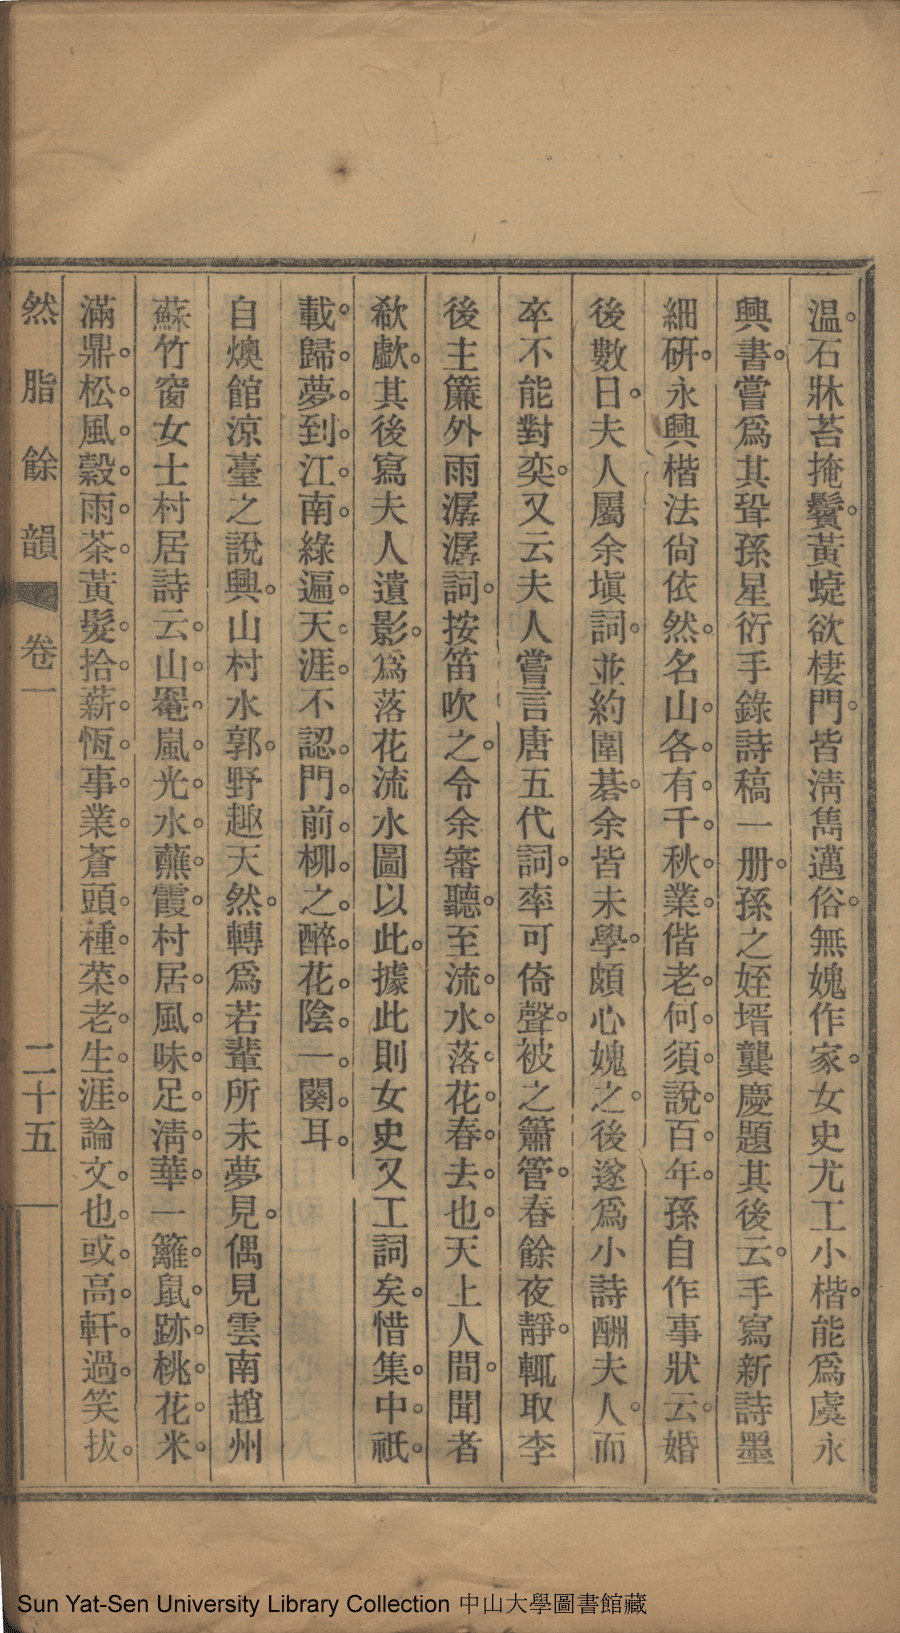 温。石牀苔掩鬢。黃蜨欲棲門。皆清雋邁俗。無媿作家。女史尤工小楷。能爲虞永
興書。嘗爲其聓孫星衍手錄詩稿一册。孫之姪壻龔慶題其後云。手寫新詩墨
細硏。永興楷法尙依然。名山。各。有。千。秋。業。偕老。何。須。說。百。年。孫自作事狀云。婚
後數日。夫人屬余塡詞。並約圍碁。余皆未學。頗心媿之。後遂爲小詩酬夫人。而
卒不能對奕。又云夫人嘗言唐五代詞。率可倚聲。被之簫管。春餘夜靜。輒取李
後主簾外雨潺潺詞。按笛吹之。令余審聽。至流。水。落。花。春。去。也。天上人間。聞者
欷歔。其後寫夫人遺影。爲落花流水圖以此。據此則女史又工詞矣。惜集。中。祇。
載。歸。夢。到。江。南。綠遍。天。涯。不認。門。前。柳。之。醉。花。陰。一。闋。耳。
自燠館涼臺之說興。山村水郭。野趣天然。轉爲若輩所未夢見。偶見雲南趙州
蘇竹窗女士村居詩云。山。罨。嵐。光。水。蘸。霞。村居。風。味。足。清。華。一籬。鼠。跡。桃。花。米。
滿鼎。松。風。穀。雨。茶。黃髮。拾。薪。恆。事。業。蒼頭。種。菜。老。生。涯。論文。也。或。高。軒。過。笑拔。
然脂餘韻 卷一 二十五
Sun Yat-Sen University Library Collection 中山大學圖書館藏